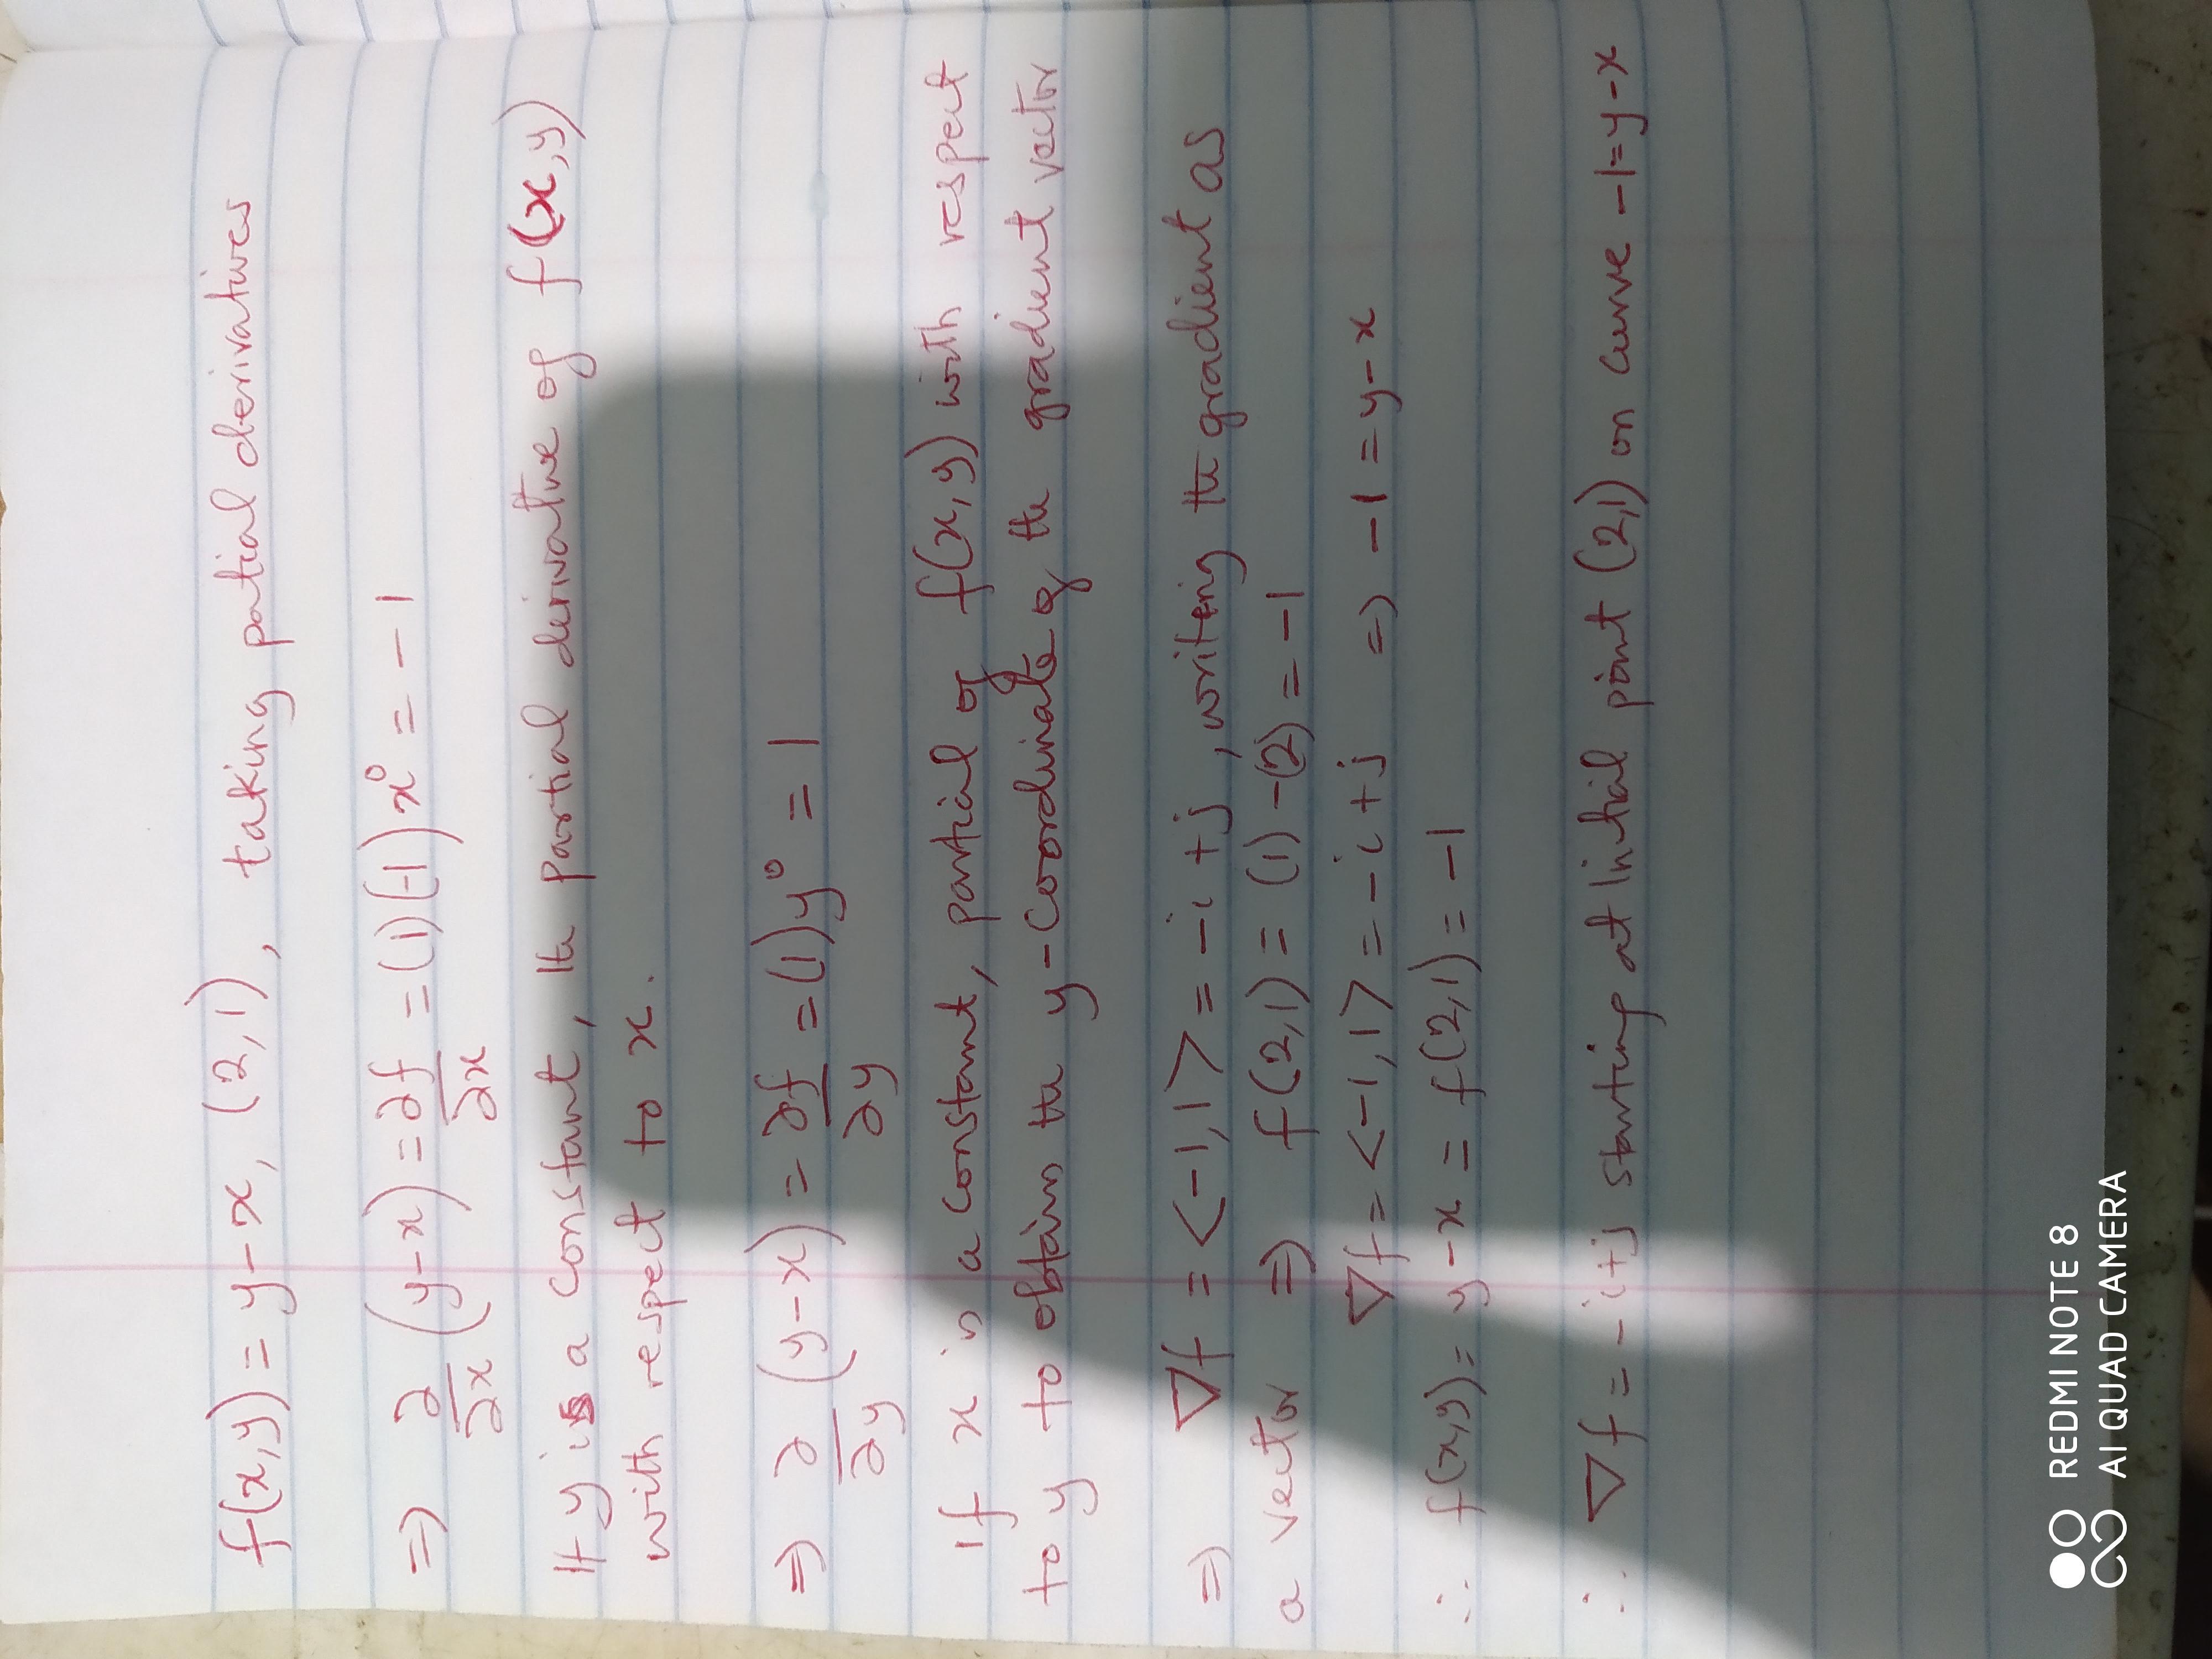 f(x,y) = y-x, (2,1), taking patial derivatives
⇒ ∂/∂x (y-x) = ∂f/∂x = (1)(-1)x⁰ = -1
If y is a constant, the partial derivative of f(x,y)
with respect to x.
⇒ ∂/∂y (y-x) = ∂f/∂y = (1)y⁰ = 1
If x is a constant, partial of f(x,y) with respect
to y to obtain the y-coordinate of the gradient vector
⇒ ∇f = <-1,1> = -i+j, writing the gradient as
a vector ⇒ f(2,1) = (1)-(2) = -1
∇f = <-1,1> = -i+j ⇒ -1 = y-x
∴ f(x,y) = y-x = f(2,1) = -1
∴ ∇f = -i+j starting at initial point (2,1) on curve -1=y-x
REDMI NOTE 8
AI QUAD CAMERA